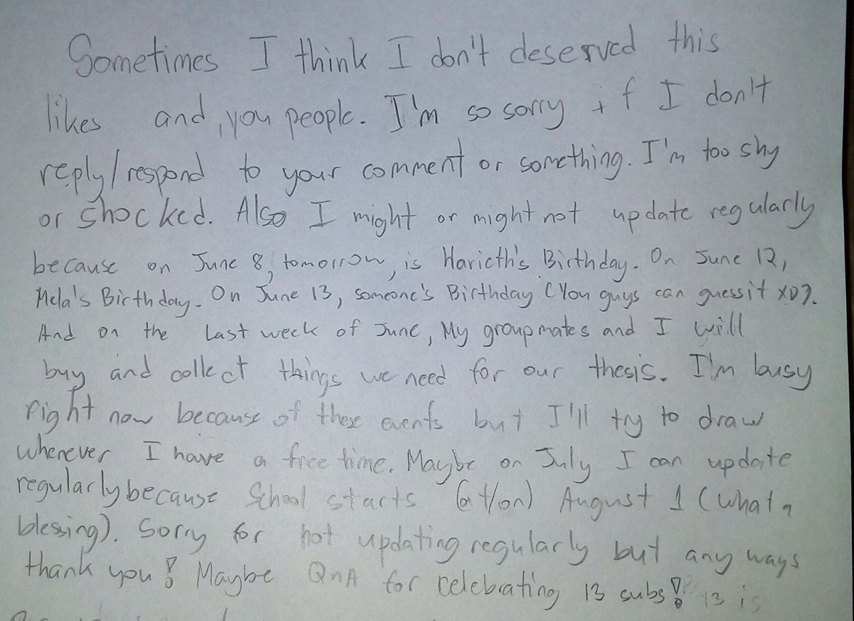 Sometimes I think I don't deserved this
likes and, you people. I'm so sorry if I don't
reply/respond to your comment or something. I'm too shy
or shocked. Also I might or might not update regularly
because on June 8, tomorrow, is Haricth's Birthday. On June 12,
Mela's Birthday. On June 13, someone's Birthday (You guys can guess it XD).
And on the last week of June, My groupmates and I will
buy and collect things we need for our thesis. I'm busy
right now because of these events but I'll try to draw
whenever I have a free time. Maybe on July I can update
regularly because School starts (at/on) August 1 (what a
blessing). Sorry for not updating regularly but any ways
thank you! Maybe QnA for celebrating 13 subs! 13 is